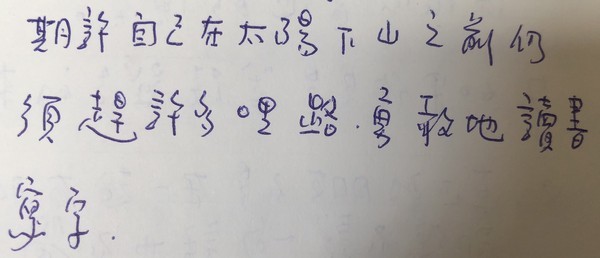 期許自己在太陽下山之前仍
須趕許多哩路.勇敢地讀書
寫字.